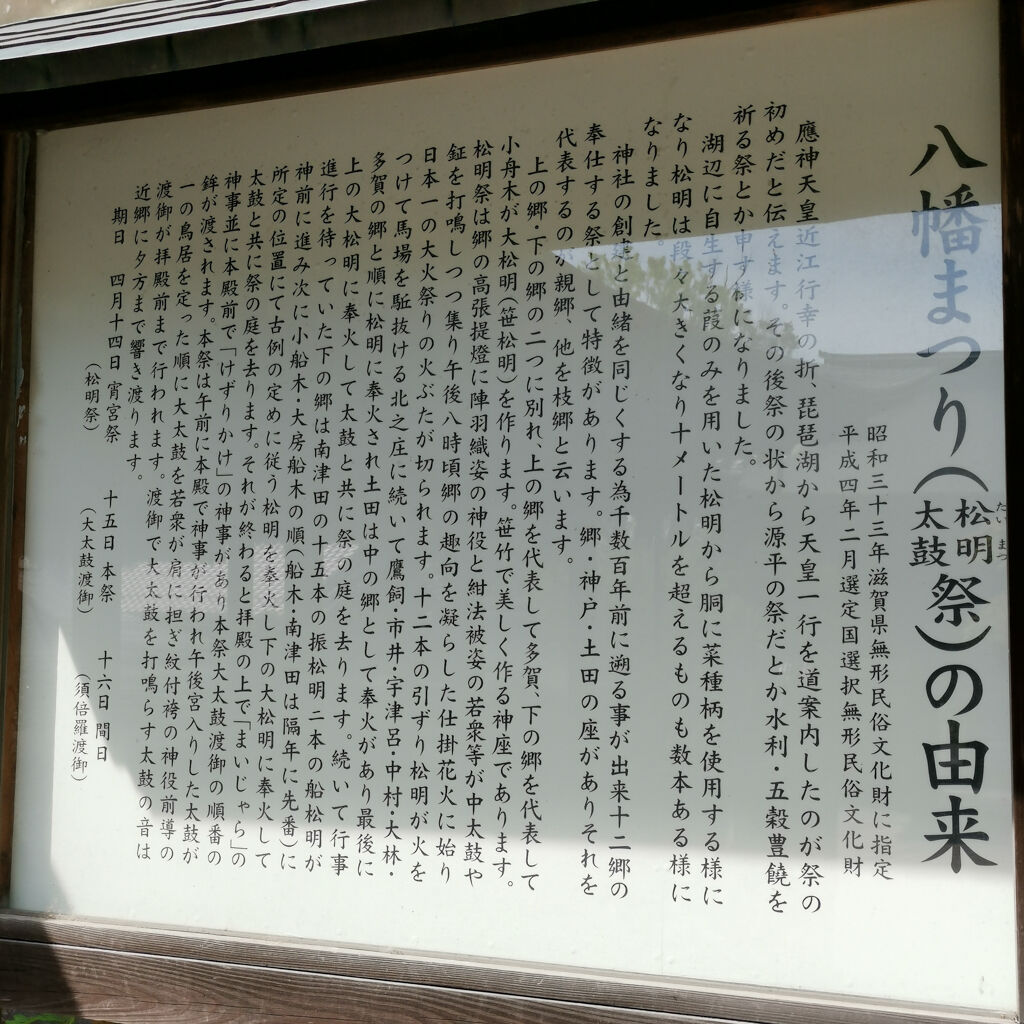 八幡まつり（松明 太鼓 祭）の由来
たい まつ
昭和三十三年滋賀県無形民俗文化財に指定
平成四年二月選定国選択無形民俗文化財
應神天皇近江行幸の折、琵琶湖から天皇一行を道案内したのが祭の
初めだと伝えます。その後祭の状から源平の祭だとか水利・五穀豊饒を
祈る祭とか申す様になりました。
湖辺に自生する葭のみを用いた松明から胴に菜種柄を使用する様に
なり松明は段々大きくなり十メートルを超えるものも数本ある様に
なりました。
神社の創建と由緒を同じくする為千数百年前に遡る事が出来十二郷の
奉仕する祭として特徴があります。郷・神戸・土田の座がありそれを
代表するのが親郷、他を枝郷と云います。
上の郷・下の郷の二つに別れ、上の郷を代表して多賀、下の郷を代表して
小舟木が大松明（笹松明）を作ります。笹竹で美しく作る神座であります。
松明祭は郷の高張提燈に陣羽織姿の神役と紺法被姿の若衆等が中太鼓や
鉦を打鳴しつつ集り午後八時頃郷の趣向を凝らした仕掛花火に始り
日本一の大火祭りの火ぶたが切られます。十二本の引ずり松明が火を
つけて馬場を駈抜ける北之庄に続いて鷹飼・市井・宇津呂・中村・大林・
多賀の郷と順に松明に奉火され土田は中の郷として奉火があり最後に
上の大松明に奉火して太鼓と共に祭の庭を去ります。続いて行事
進行を待っていた下の郷は南津田の十五本の振松明二本の船松明が
神前に進み次に小船木・大房船木の順（船木・南津田は隔年に先番）に
所定の位置にて古例の定めに従う松明を奉火し下の大松明に奉火して
太鼓と共に祭の庭を去ります。それが終わると拝殿の上で「まいじゃら」の
神事並に本殿前で「けずりかけ」の神事があり本祭大太鼓渡御の順番の
鉾が渡されます。本祭は午前に本殿で神事が行われ午後宮入りした太鼓が
一の鳥居を定った順に大太鼓を若衆が肩に担ぎ紋付袴の神役前導の
渡御が拝殿前まで行われます。渡御で大太鼓を打鳴らす太鼓の音は
近郷に夕方まで響き渡ります。
期日 四月十四日 宵宮祭 十五日 本祭 十六日 間日
（松明祭） （大太鼓渡御） （須倍羅渡御）